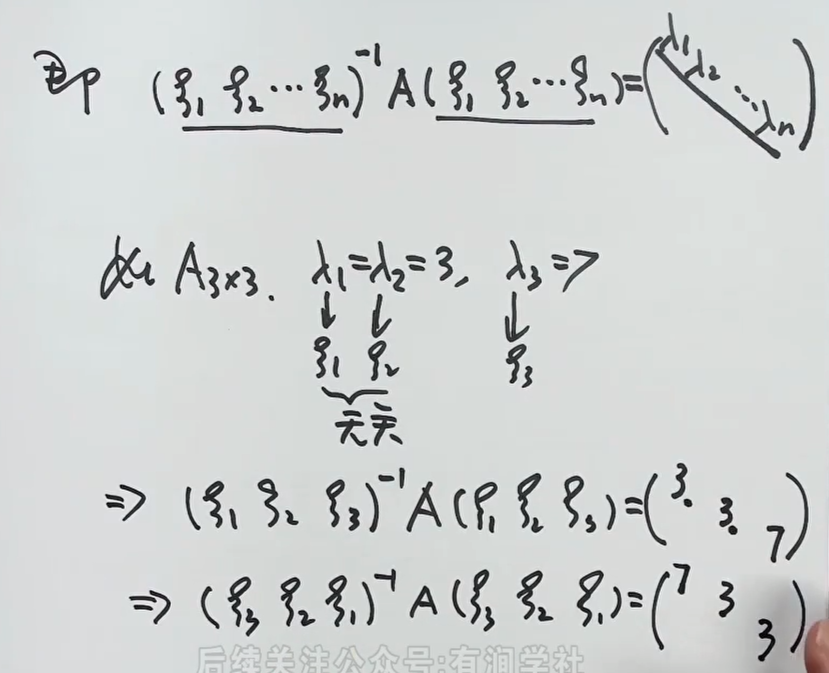 即 (ξ₁ ξ₂ ⋯ ξₙ)⁻¹ A (ξ₁ ξ₂ ⋯ ξₙ) = (λ₁ λ₂ ⋯ λₙ)
如 A₃ₓ₃. λ₁=λ₂=3, λ₃=7
↓ ↓ ↓
ξ₁ ξ₂ ξ₃
无关
⇒ (ξ₁ ξ₂ ξ₃)⁻¹ A (ξ₁ ξ₂ ξ₃) = (3. 3. 7)
⇒ (ξ₃ ξ₂ ξ₁)⁻¹ A (ξ₃ ξ₂ ξ₁) = (7 3 3)
后续关注公众号:有涧学社